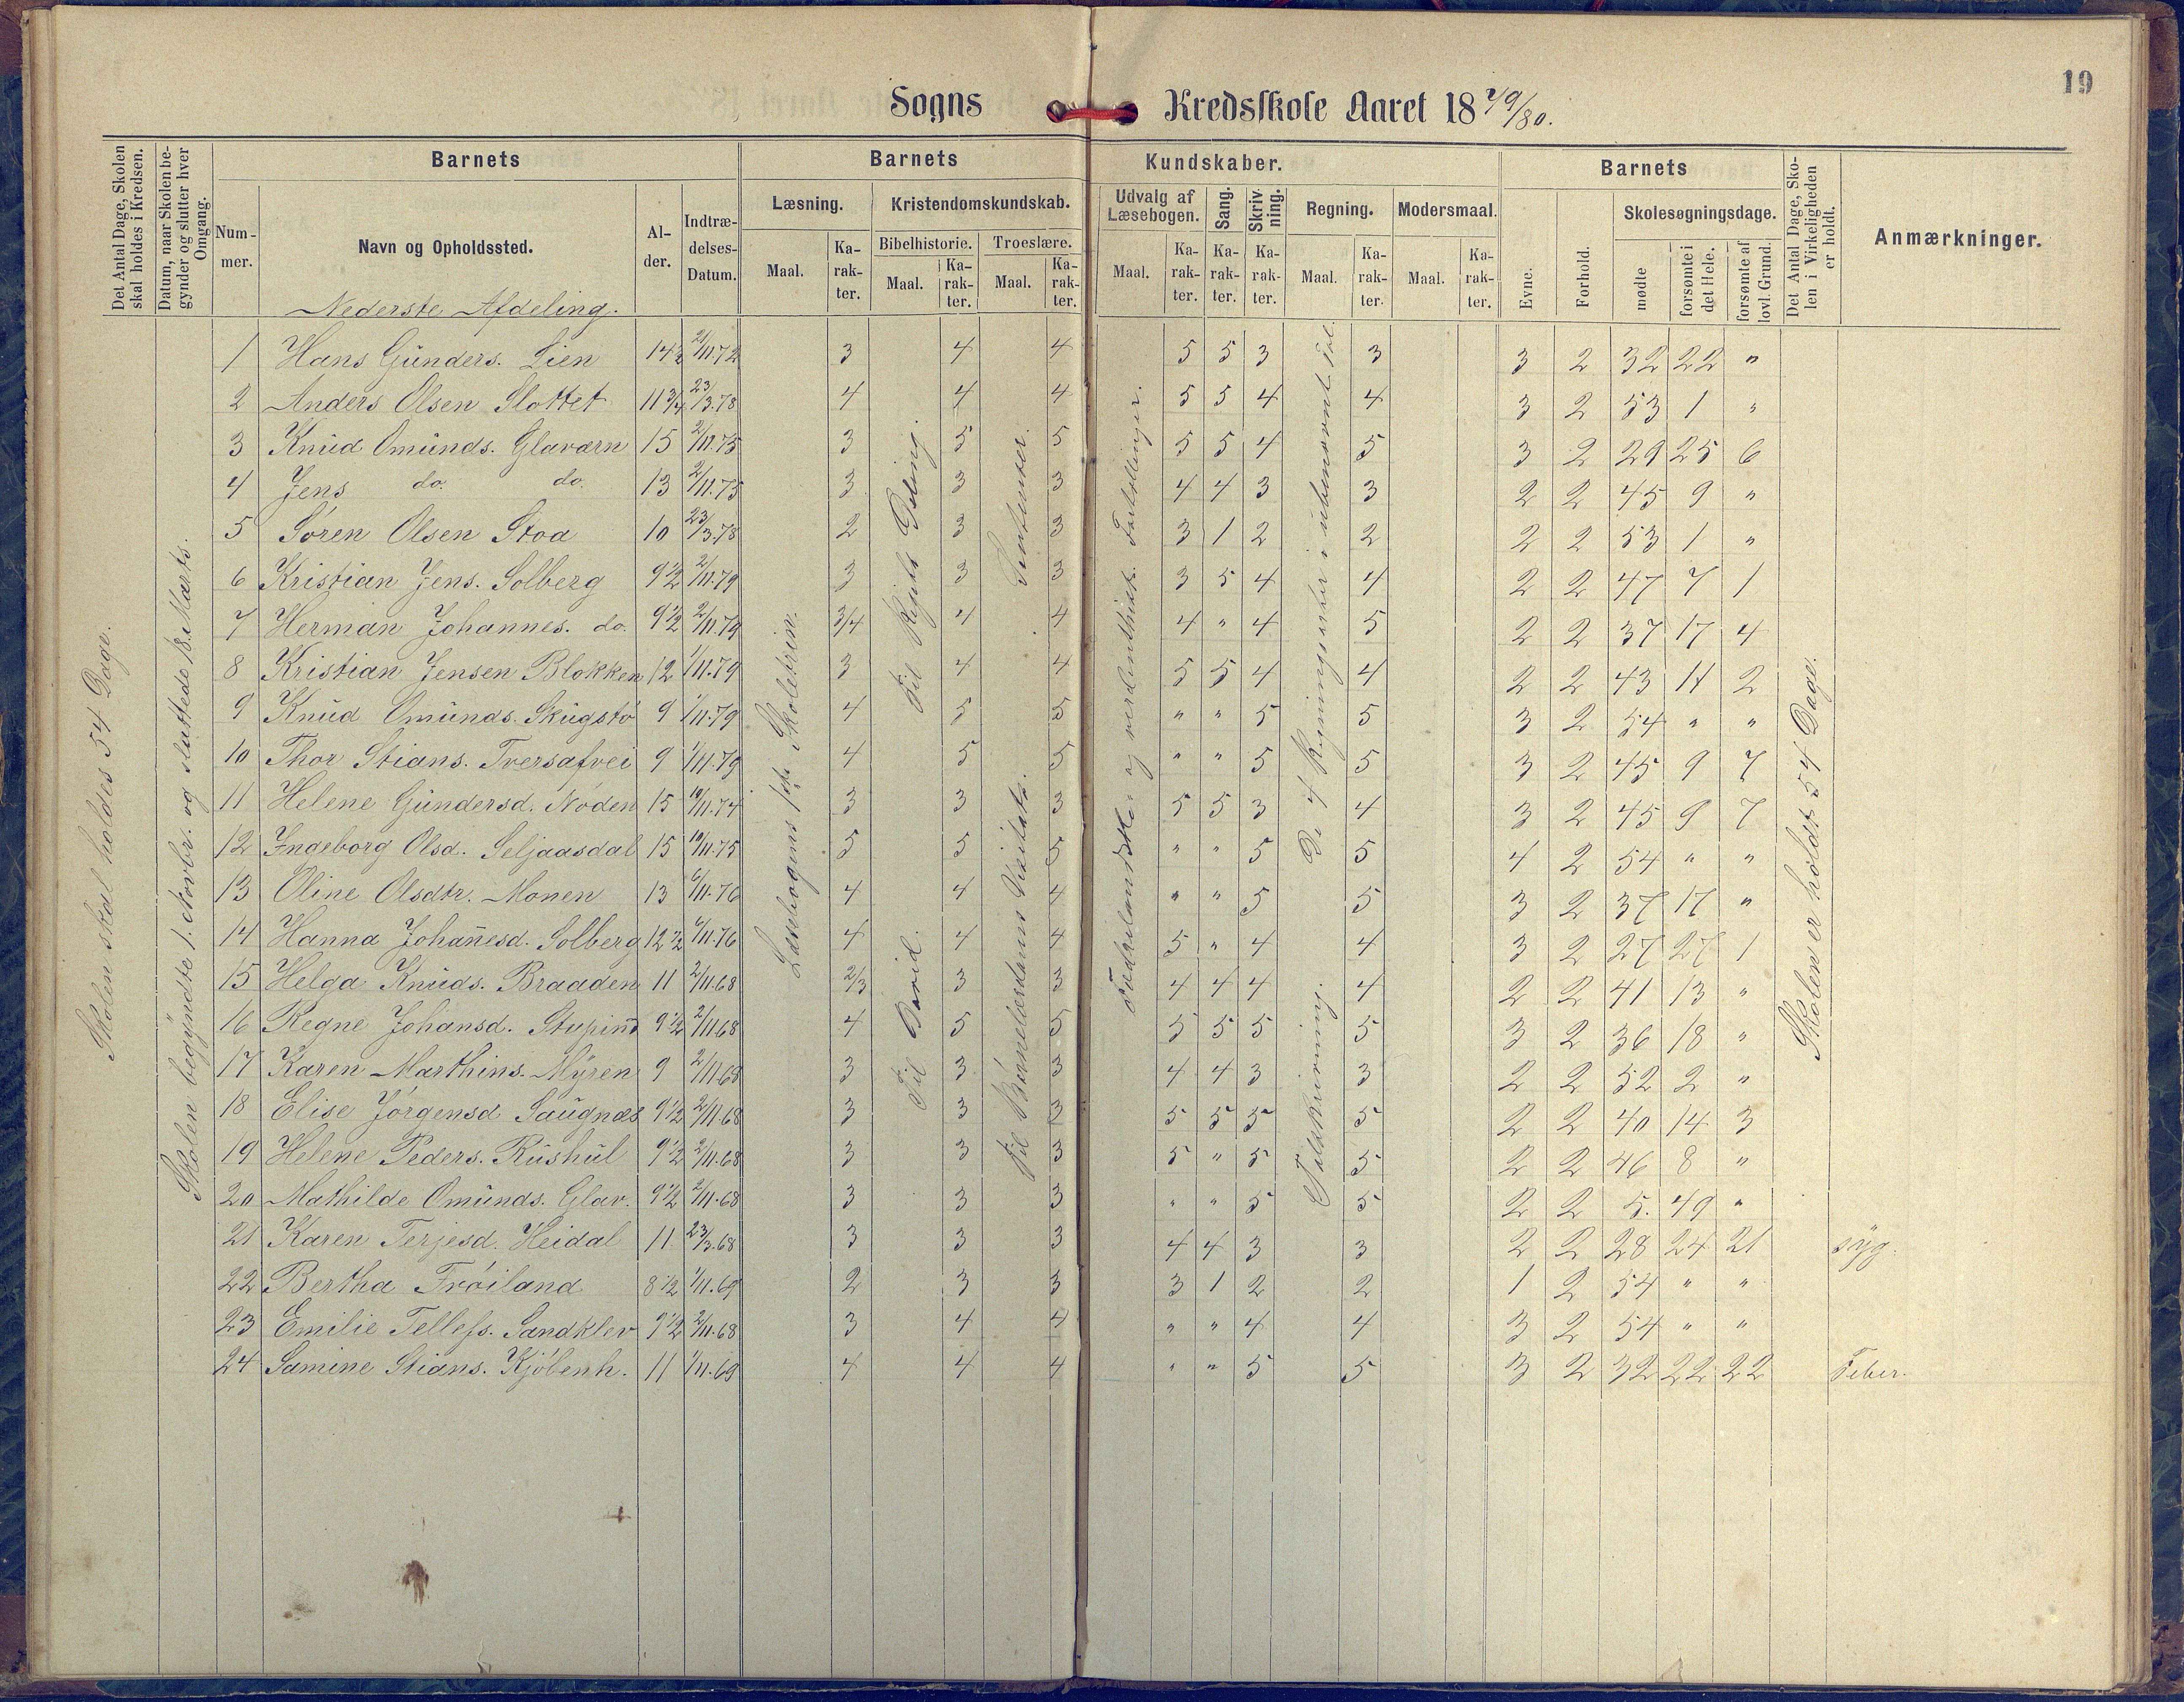 19
Sogns Kredsskole Aaret 1879/80.
Det Antal Dage, Skolen skal holdes i Kredsen.
Datum, naar Skolen begynder og slutter hver Omgang.
Barnets
Nummer.
Navn og Opholdssted.
Alder.
Indtrædelses-Datum.
Barnets Kundskaber.
Læsning.
Maal. Karakter.
Kristendomskundskab.
Bibelhistorie. Troeslære.
Maal. Karakter. Maal. Karakter.
Udvalg af Læsebogen. Sang. Skrivning. Regning. Modersmaal.
Maal. Karakter. Karakter. Karakter. Maal. Karakter. Maal. Karakter.
Barnets
Evne. Forhold. Skolesøgningsdage.
mødte forsømte i det Hele. forsømte af lovl. Grund.
Det Antal Dage, Skolen i Virkeligheden er holdt.
Anmærkninger.
Nederste Afdeling.
Skolen skal holdes 54 Dage.
Skolen begyndte 1. Novbr. og sluttede 18. Marts.
Læsebogens 1ste Skoletrin.
Til David.
Til Børnelærdoms
De 4 Regningsarter i ubenævnte Tal.
Tavleregning.
Skolen er holdt 54 Dage.
1 Hans Gunders. Lien 14½ 2/11.72 3 4 4 5 5 3 3 3 2 32 22 "
2 Anders Olsen Slottet 11¾ 23/3.78 4 4 4 5 5 4 4 3 2 53 1 "
3 Knud Omunds. Glaværn 15 2/11.75 3 5 5 5 5 4 5 3 2 29 25 6
4 Jens do. do. 13 2/11.75 3 3 3 4 4 3 3 2 2 45 9 "
5 Søren Olsen Stoa 10 23/3.78 2 3 3 3 1 2 2 2 2 53 1 "
6 Kristian Jens. Solberg 9½ 2/11.79 3 3 3 3 5 4 4 2 2 47 7 1
7 Herman Johannes. do. 9½ 2/11.79 3/4 4 4 4 " 4 5 2 2 37 17 4
8 Kristian Jensen Blokken 12 1/11.79 3 4 4 5 5 4 4 2 2 43 11 2
9 Knud Omunds. Skugstø 9 1/11.79 4 5 5 " " 5 5 3 2 54 " "
10 Thor Stians. Tversafvei 9 1/11.79 4 5 5 " " 5 5 3 2 45 9 7
11 Helene Gundersd. Nøden 15 10/11.74 3 3 3 5 5 3 4 3 2 45 9 7
12 Ingeborg Olsd. Seljaasdal 15 10/11.75 5 5 5 " " 5 5 4 2 54 " "
13 Oline Olsdtr. Monen 13 6/11.76 4 4 4 " " 5 5 3 2 37 17 "
14 Hanna Johañesd. Solberg 12½ 6/11.76 4 4 4 5 " 4 4 3 2 27 27 1
15 Helga Knuds. Braaden 11 2/11.68 2/3 3 3 4 4 4 4 2 2 41 13 "
16 Regne Johansd. 9½ 2/11.68 4 5 5 5 5 5 5 3 2 36 18 "
17 Karen Marthins. Myren 9 2/11.68 3 3 3 4 4 3 3 2 2 52 2 "
18 Elise Jørgensd Saugnæs 9½ 2/11.68 3 3 3 5 5 5 5 2 2 40 14 3
19 Helene Peders. Rushul 9½ 2/11.68 3 3 3 5 " 5 5 2 2 46 8 "
20 Mathilde Omunds. Glav. 9½ 2/11.68 3 3 3 " " 5 5 2 2 5. 49 "
21 Karen Terjesd. Heidal 11 23/3.68 3 3 3 4 4 3 3 2 2 28 24 21 syg.
22 Bertha Frøiland 8½ 1/11.69 2 3 3 3 1 2 2 1 2 54 " "
23 Emilie Tellefs. Sandklev 9½ 2/11.68 3 4 4 " " 4 4 3 2 54 " "
24 Samine Stians. Kjøbenh. 11 1/11.69 4 4 4 " " 5 5 3 2 32 22 22 Feber.